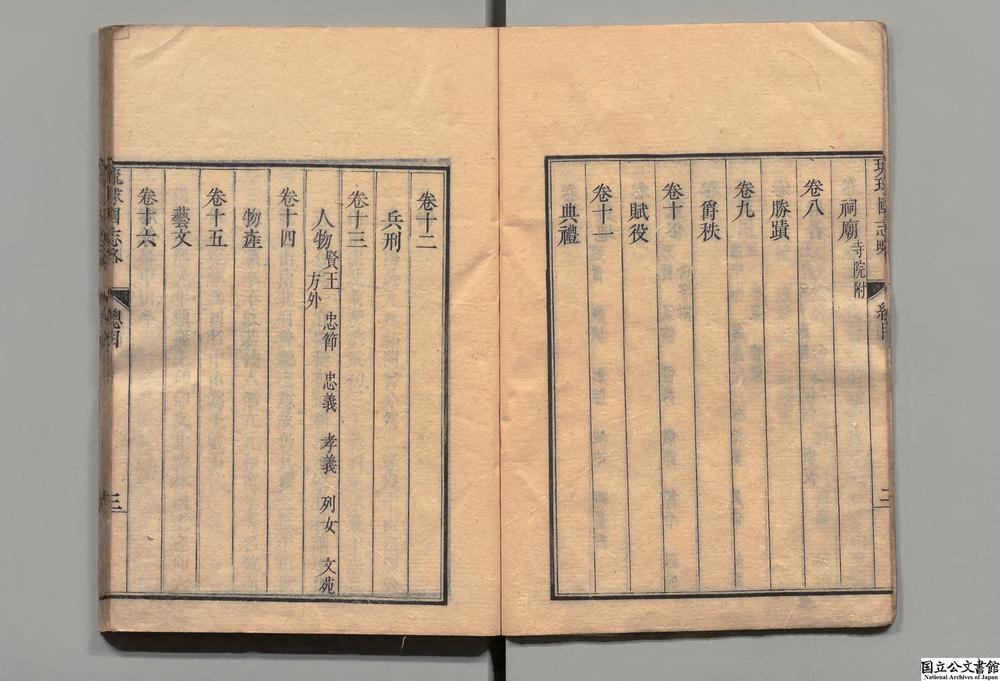 琉球國志略
總目
二
祠廟寺院附
卷八
勝蹟
卷九
爵秩
卷十
賦役
卷十一
典禮
卷十二
兵刑
卷十三
人物賢王 忠節 忠義 孝義 列女 文苑
方外
卷十四
物產
卷十五
藝文
卷十六
琉球國志略
總目
三
国立公文書館
National Archives of Japan